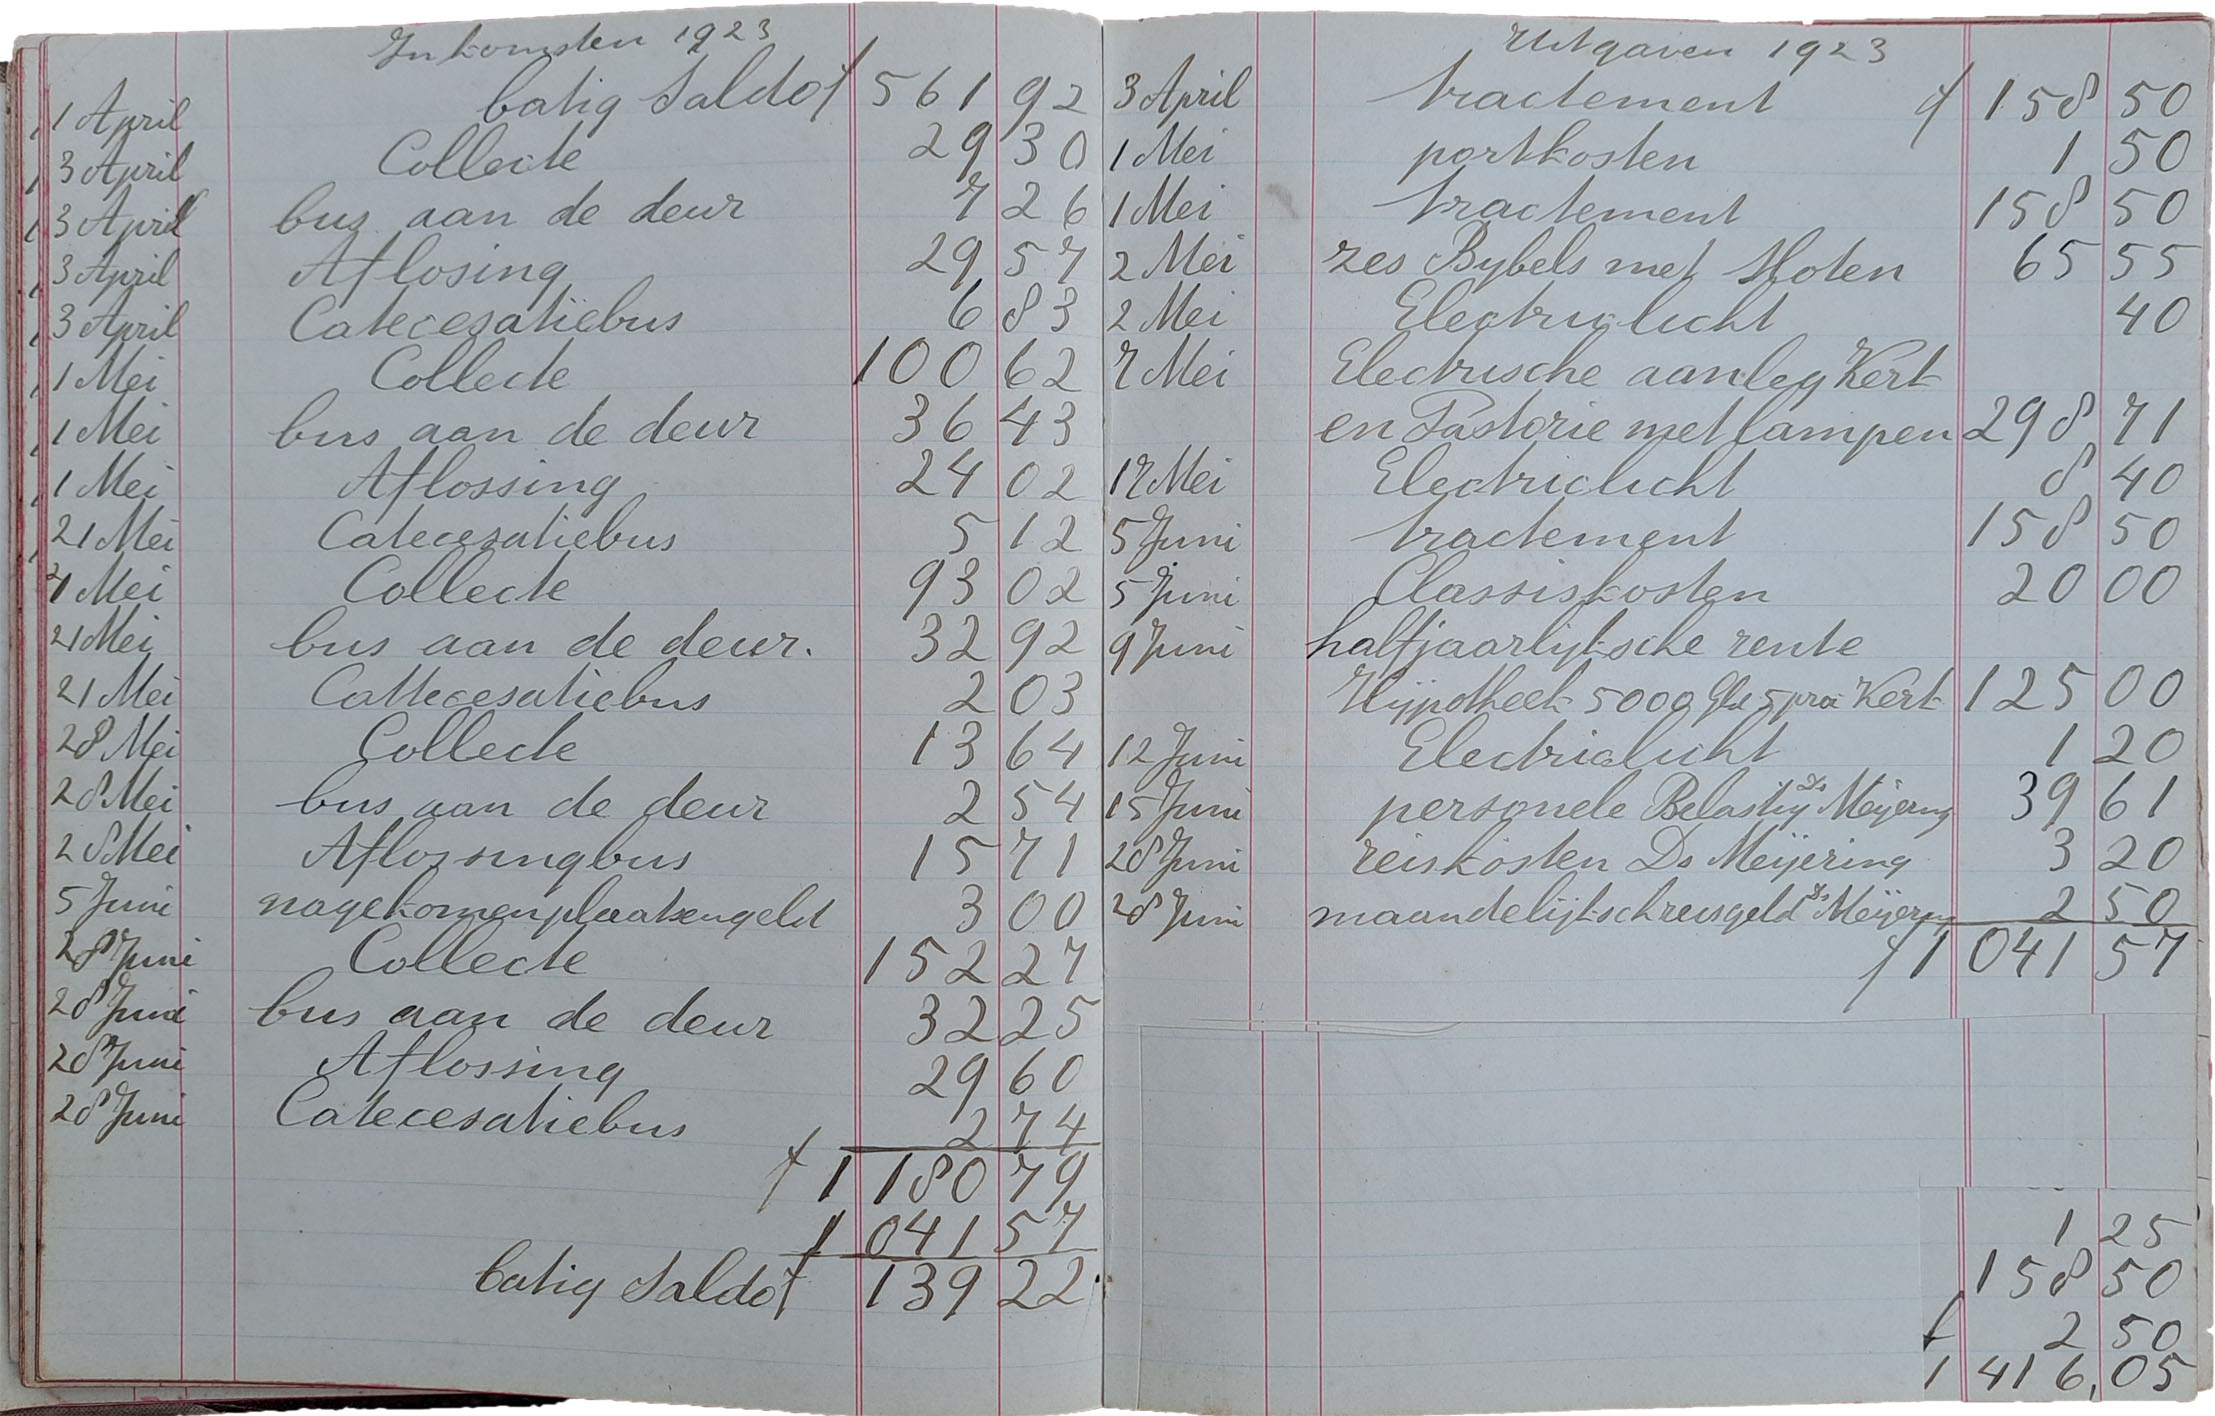 Inkomsten 1923
batig Saldo f 561 92
1 April Collecte 29 30
3 April bus aan de deur 7 26
3 April Aflosing 29 57
3 April Catecesatiebus 6 83
3 April
1 Mei Collecte 100 62
1 Mei bus aan de deur 36 43
1 Mei Aflossing 24 02
21 Mei Catecesatiebus 5 12
21 Mei Collecte 93 02
21 Mei bus aan de deur. 32 92
21 Mei Cattecesatiebus 2 03
28 Mei Collecte 13 64
28 Mei bus aan de deur 2 54
28 Mei Aflossingbus 15 71
5 Juni nagekomenplaatsengeld 3 00
28 Juni Collecte 152 27
28 Juni bus aan de deur 32 25
28 Juni Aflossing 29 60
28 Juni Catecesatiebus 2 74
f 1 180 79
1 041 57
batig Saldo f 139 22
Uitgaven 1923
3 April tractement f 158 50
1 Mei portkosten 1 50
1 Mei tractement 158 50
2 Mei zes Bybels met Sloten 65 55
2 Mei Electriclicht 40
7 Mei Electrische aanleg Kerk
en Pastorie met lampen 298 71
17 Mei Electriclicht 8 40
5 Juni tractement 158 50
5 Juni Classiskosten 20 00
9 Juni halfjaarlijksche rente
Hijpotheek 5000 Gld 5 pro Kerk 125 00
12 Juni Electriclicht 1 20
15 Juni personele Belasting Ds Meijering 39 61
28 Juni reiskosten Ds Meijering 3 20
28 Juni maandelijkschreisgeld Ds Meijering 2 50
f 1 041 57
1 25
158 50
f 2 50
1 416,05